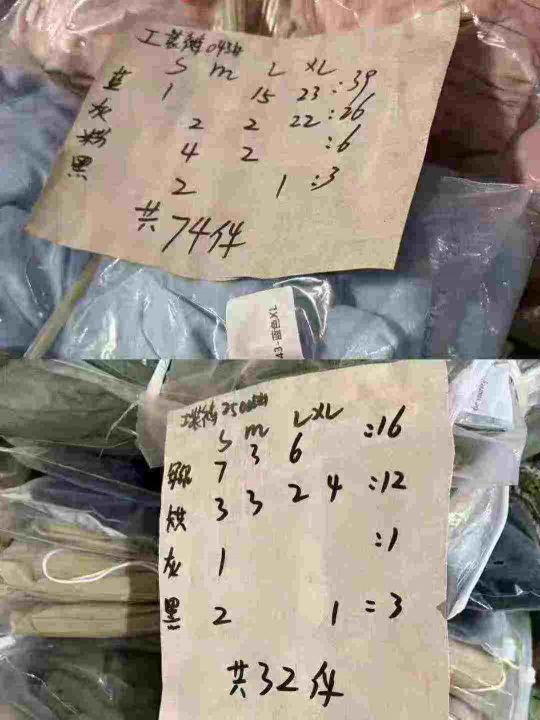 工装裤043#
S M L XL
蓝 1 15 23 :39
灰 2 2 22 :26
粉 4 2 :6
黑 2 1 :3
共74件
43-蓝色XL
2500
S m L XL
7 3 6 :16
3 3 2 4 :12
灰 1 :1
黑 2 1 = 3
共32件